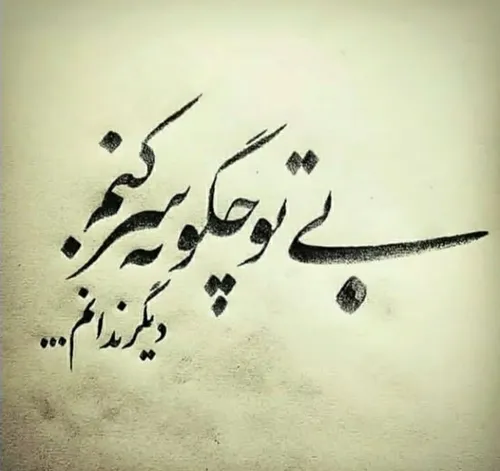 بی تو چگونه سر کنم
دیگر ندانم...